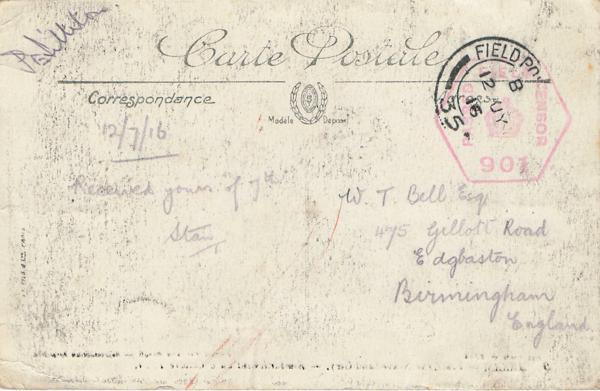 Carte Postale
Correspondance
Modèle
Déposé
FIELD PO
B
12 JY
16
35
PASSED FIELD CENSOR
901
12/7/16
Received yours of 7th
Stan
W. T. Bell Esq
475 Gillott Road
Edgbaston
Birmingham
England